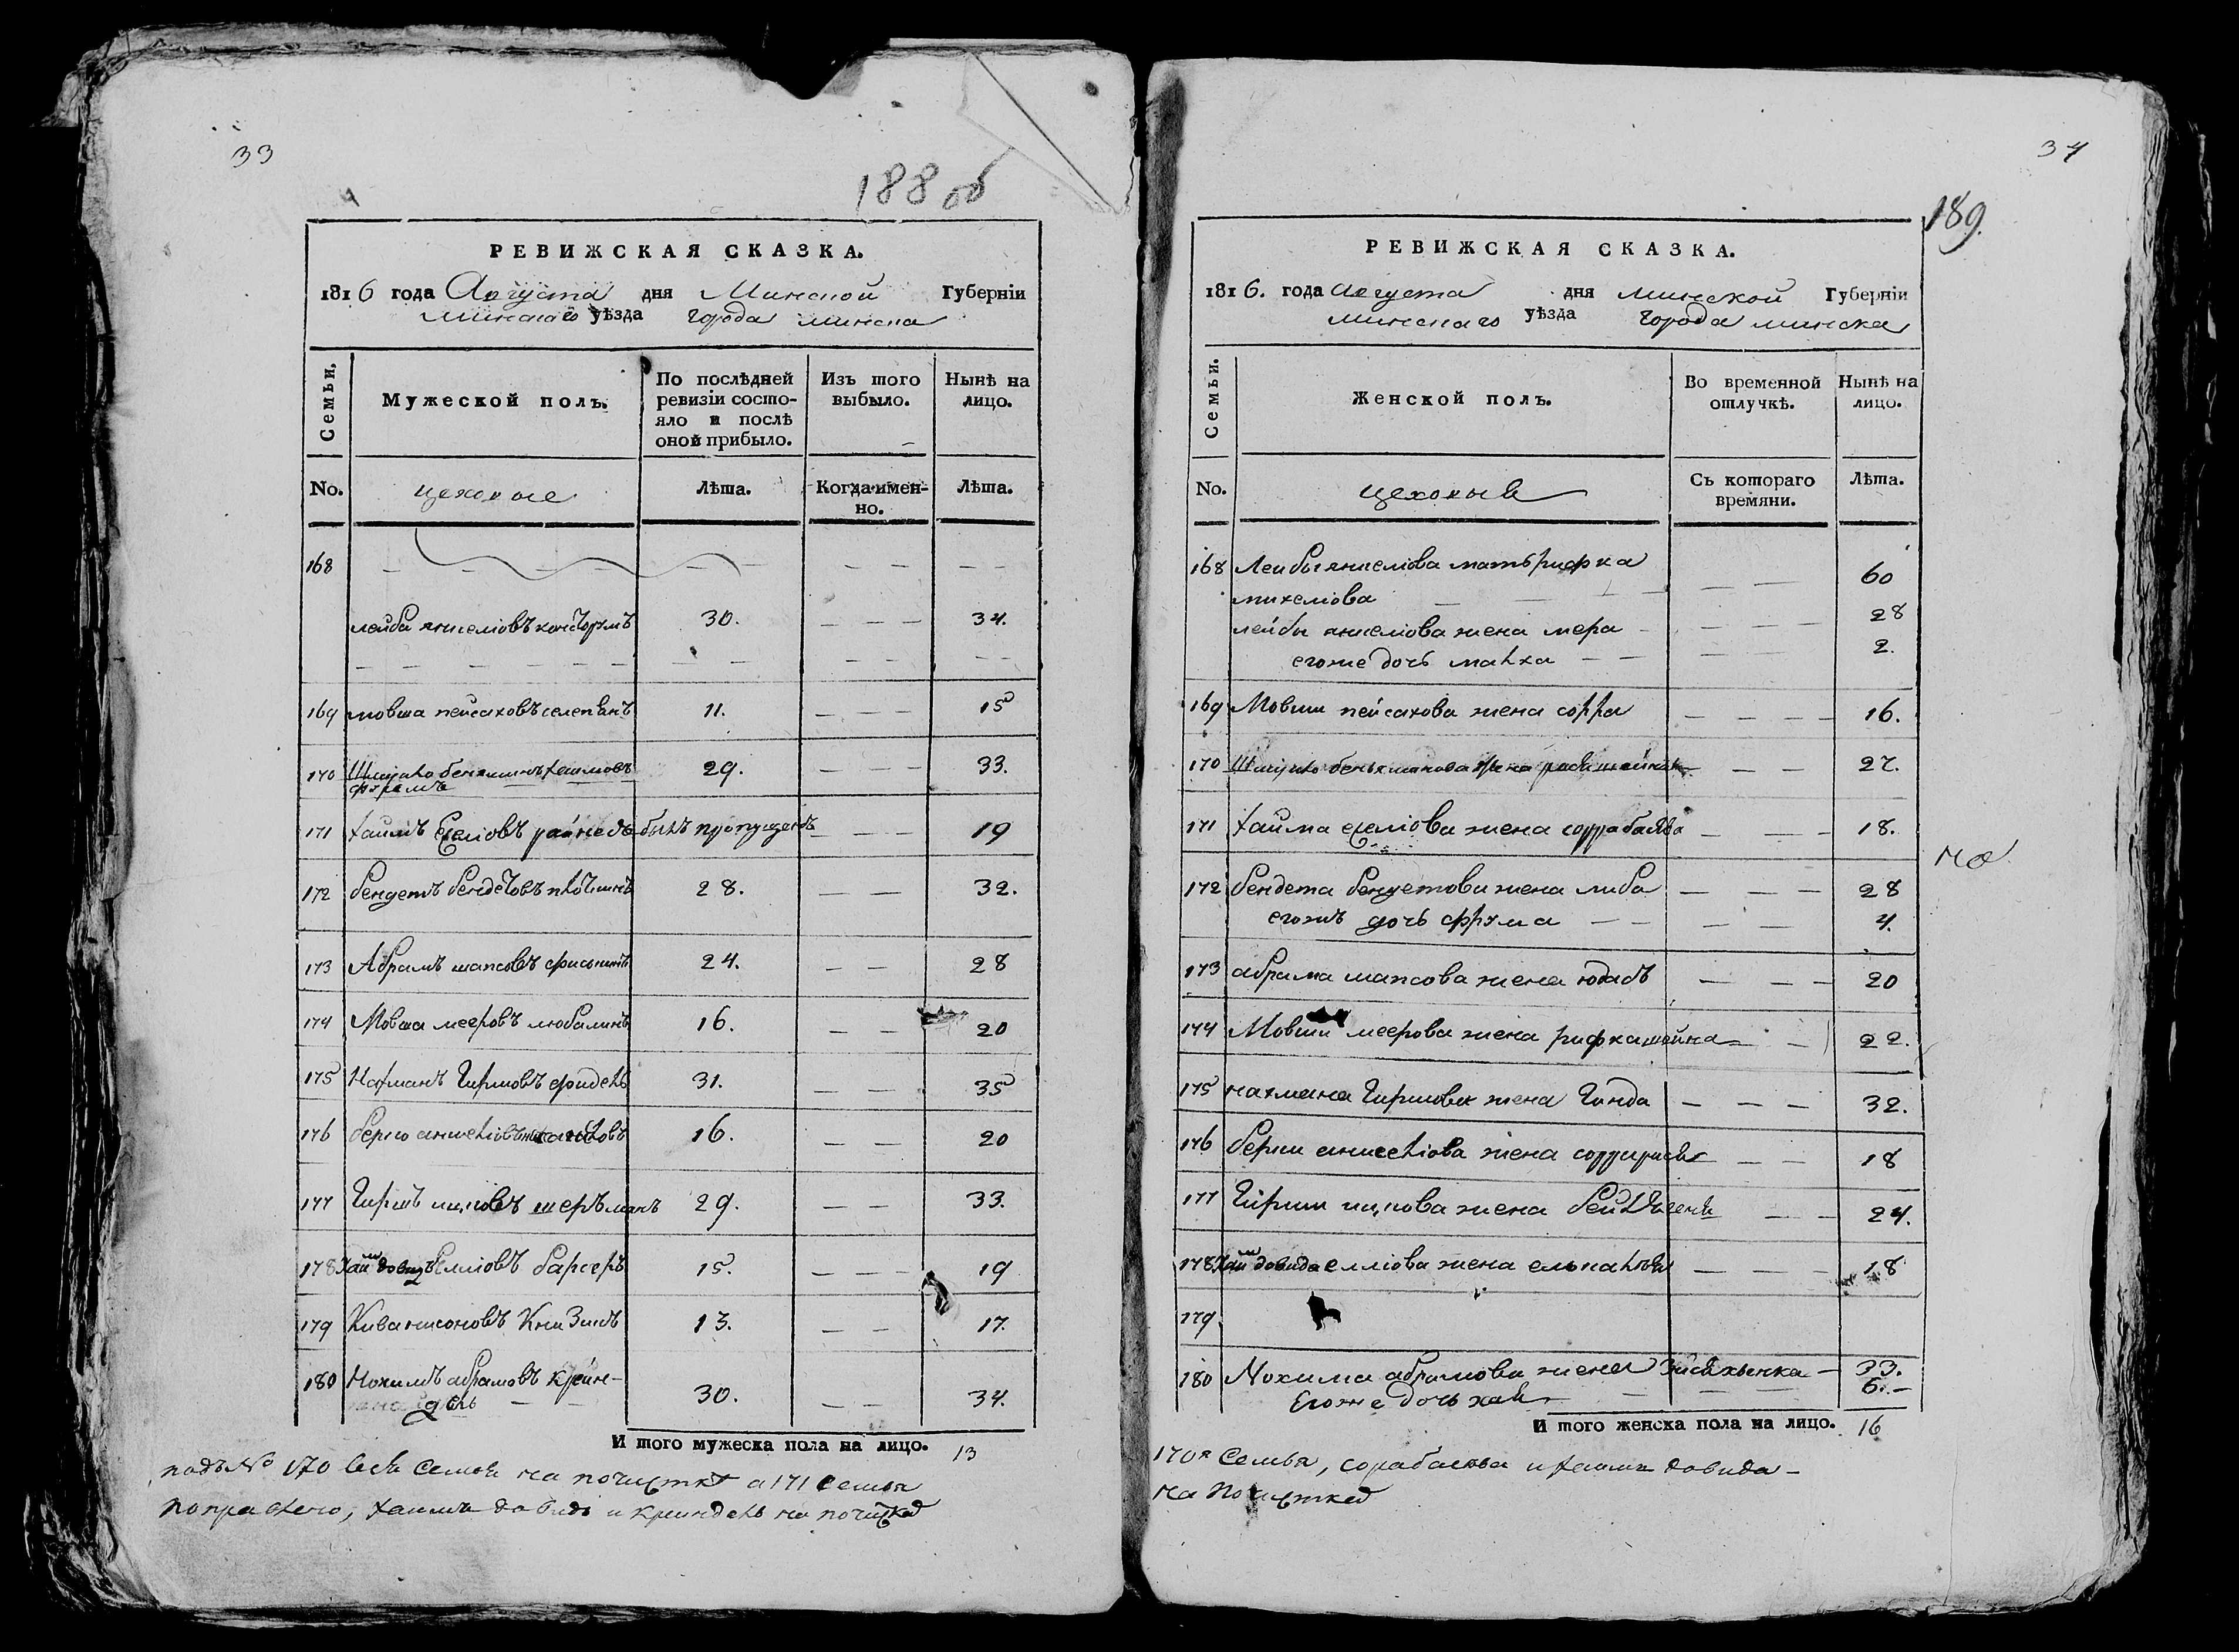 33
188 об
РЕВИЖСКАЯ СКАЗКА.
1816 года Августа дня Минской Губерніи
Минскаго уѣзда города минска
Семьи,
Мужеской полъ.
По послѣдней ревизіи состо-
яло и послѣ
оной прибыло.
Изъ того
выбыло.
Нынѣ на
лицо.
No.
цеховые
Лѣта.
Когда имен-
но.
Лѣта.
168 — — — — —
лейба янкелiовъ 30. — — — 34.
169 мовша пейсаховъ 11. — — — 15
170 Шмуйло беняминъ хаимовъ 29. — — — 33.
фуремъ
171 хаимъ былъ пропущенъ — — 19
172 бендетъ бендетовъ 28. — — 32.
173 Абрамъ шапсовъ 24. — — 28
174 Мовша мееровъ любалинъ 16. — — 20
175 Нахманъ Гиршовъ фидель 31. — — 35
176 берко 16. — — 20
177 Гиршъ ицковъ шерѣманъ 29. — — 33.
178 Хаим довидъ еллiовъ барсеръ 15. — — — 19
179 Кива нисоновъ 13. — — 17.
180 Нохимъ абрамовъ крейн-
дель 30. — — 34.
И того мужеска пола на лицо. 13
подъ No 170 вся семья на почистке а 171 семья
поправлено, хаимъ довидъ и крейндель на почистке
34
189.
РЕВИЖСКАЯ СКАЗКА.
1816. года августа дня минской Губерніи
минскаго уѣзда города минска
Семьи.
Женской полъ.
Во временной
отлучкѣ.
Нынѣ на
лицо.
No.
цеховыя
Съ котораго
времяни.
Лѣта.
168 Лейбы янкелiова мать рифка — — 60
михелiова
лейбы янкелiова жена мера — — — 28
егоже дочь малка — — 2.
169 Мовши пейсахова жена сорра — — — — 16.
170 Шмуйло беньяминова жена — — 27.
171 хайма жена соррабася — — — 18.
на
172 бендета бендетова жена либа — — — 28
егожъ дочь фрума — — 4.
173 абрама шапсова жена юдасъ — — — 20
174 Мовши меерова жена рифкашейна — — 22.
175 нахмана Гиршова жена Гинда — — — 32.
176 берки жена — — 18
177 Гирши ицкова жена — — 24.
178 Хаим довида еллiова жена — — — 18
179.
180 Нохима абрамова жена — 33.
Егоже дочь хая — — 6. —
И того женска пола на лицо. 16
170я Семья, сорабася и хаима довида —
на почистке